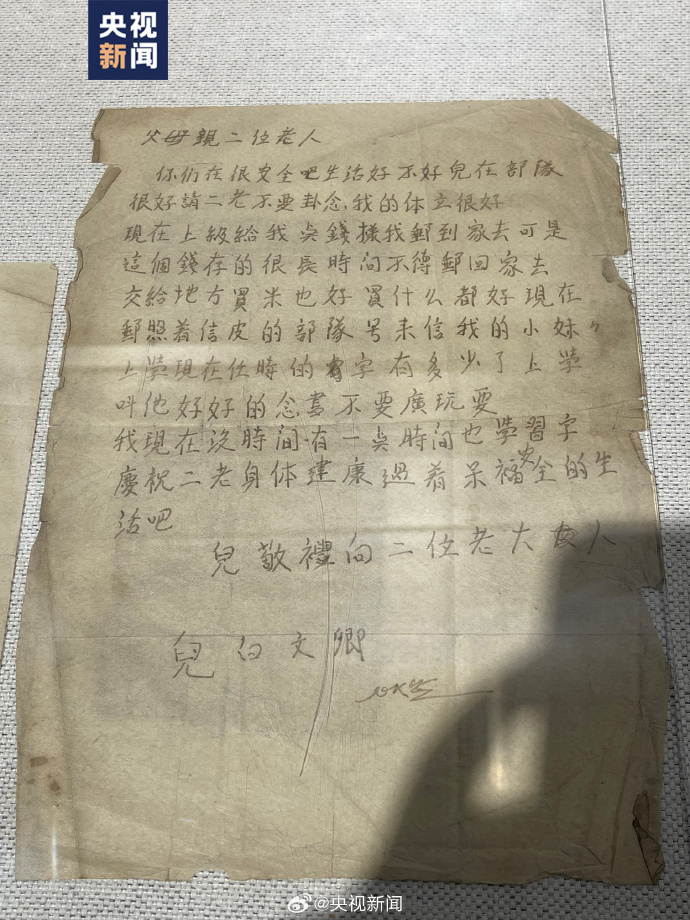 央视
新闻
父母親二位老人
你们在很安全吧生活好不好兒在部隊
很好請二老不要卦念.我的体立很好
現在上級給我吳錢樣我郵到家去可是
這個錢存的很長時间不得郵回家去
交給地方買米也好買什么都好現在
郵照着信皮的部隊号来信我的小妹〃
上學現在仕時的字有多少了上學
叫他好好的念書不要廣玩耍
我現在沒時间.有一吳時间也學習字
慶祝二老身体建康過着呆福安全的生
活吧
兒敬禮向二位老大人
兒白文卿
@央视新闻